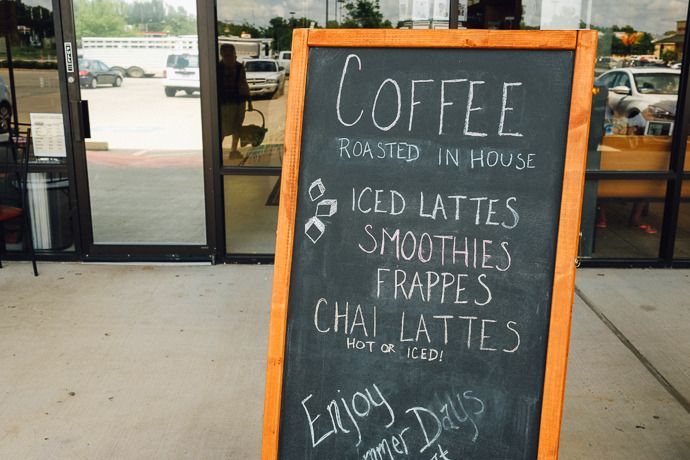 COFFEE
ROASTED IN HOUSE
ICED LATTES
SMOOTHIES
FRAPPES
CHAI LATTES
HOT OR ICED!
Enjoy
Days